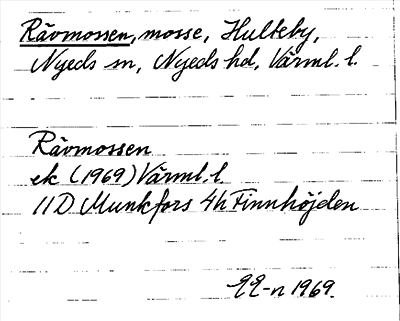 Rävmossen, mosse, Hulteby,
Nyeds sn, Nyeds hd, Värml. l.
Rävmossen
ek (1969) Värml. l.
11D Munkfors 4h Finnhöjden
1969.